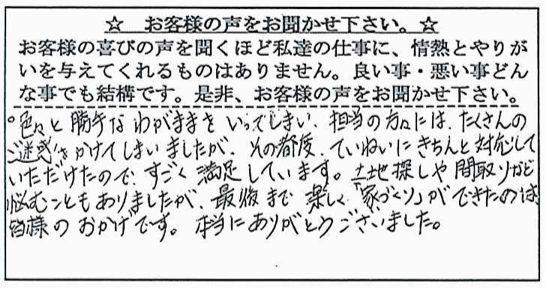 ☆ お客様の声をお聞かせ下さい。☆
お客様の喜びの声を聞くほど私達の仕事に、情熱とやりが
いを与えてくれるものはありません。良い事・悪い事どん
な事でも結構です。是非、お客様の声をお聞かせ下さい。
。色々と勝手なわがままをいってしまい、担当の方々には、たくさんの
ご迷惑をかけてしまいましたが、その都度、ていねいにきちんと対応して
いただけたので、すごく満足しています。土地探しや間取りなど
悩むこともありましたが、最後まで楽しく「家づくり」ができたのは
皆様のおかげです。本当にありがとうございました。